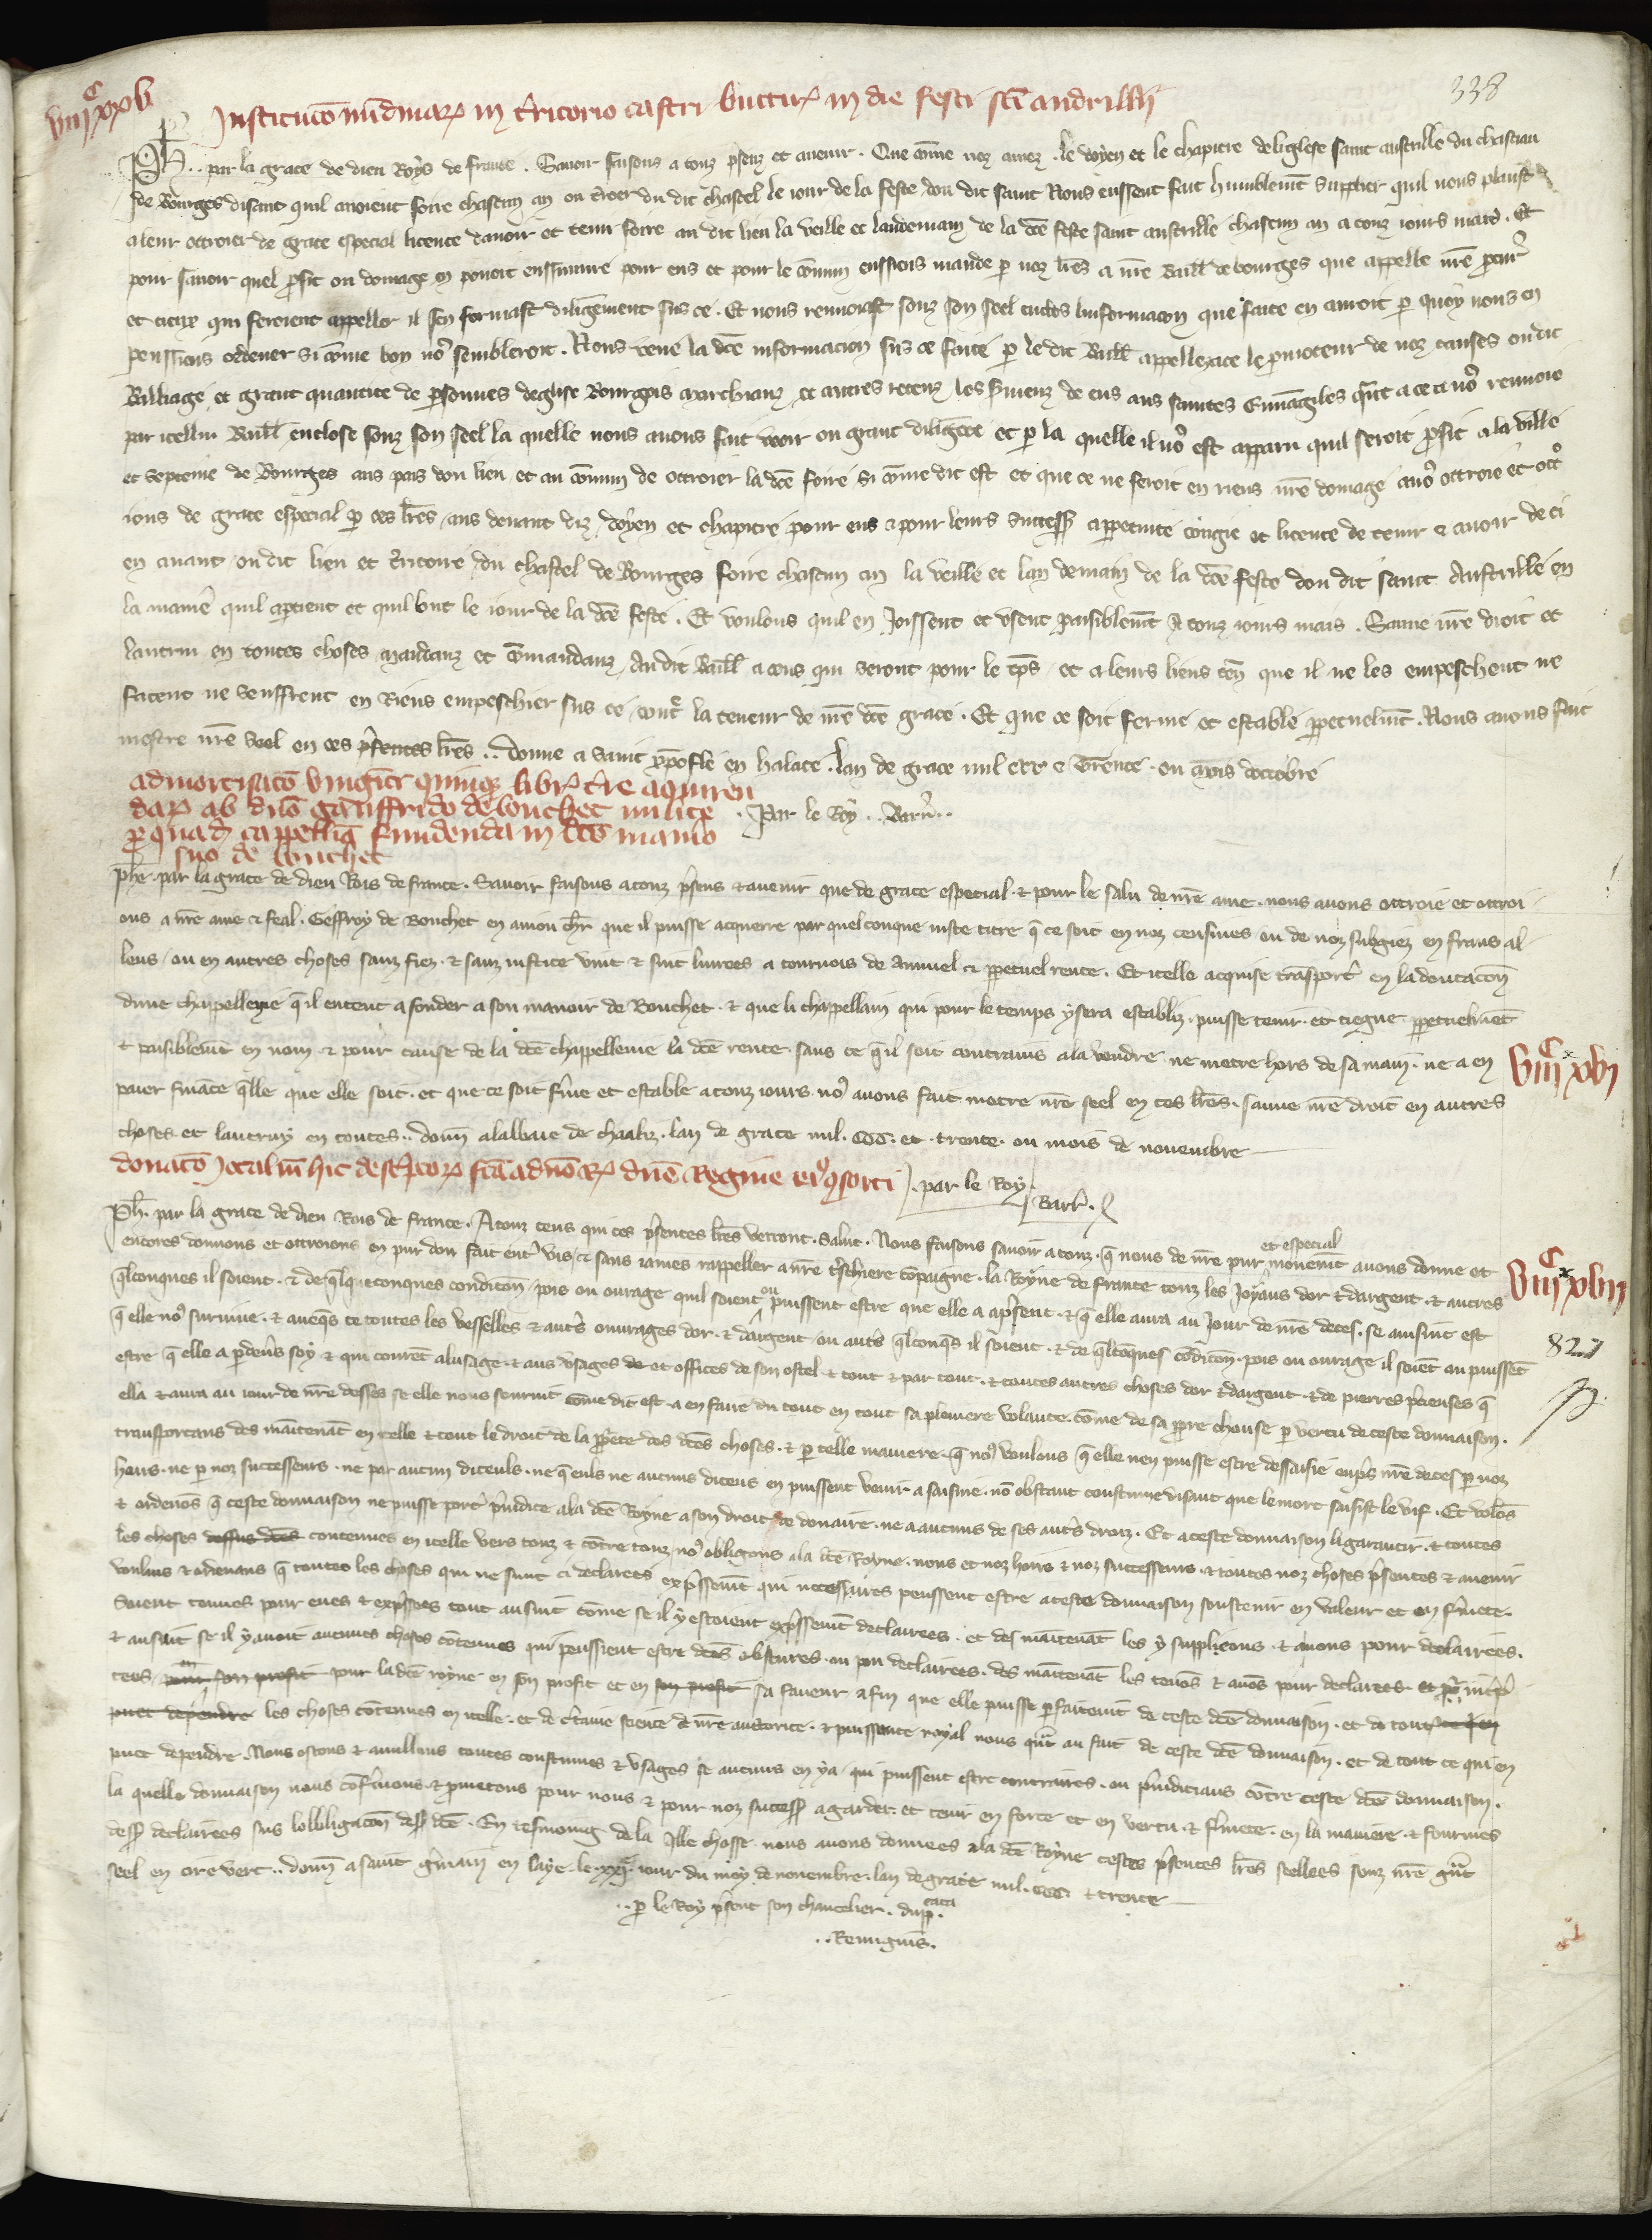 338
viijᶜxxv
Institucio nundinarꝫ in t'ritorio castri bittur' in die festi sci andrilli
Ph.. par la grace de dieu Roys de france. Savoir faisons a touz psenz et avenir. Que cōme noz amez. le doyen et le chapitre de leglese saint austrille du chasteau
de Bourges disant quil avoient foire chascun an ou t'roer du dit chastel le iour de la feste dou dit saint Nous eussent fait humblemēt supplier quil nous pleust
a leur ottroier de grace especial licence davoir et tenir foire au dit lieu la veille et landemain de la dcē feste saint austrille chascun an a touz iours mais. Et
pour savoir quel ꝓfit ou domage en povoit enssuivre pour eus et pour le cōmun eussiens mande ꝑ noz lres a nrē Baill de bourges que appelle nrē ꝓcur'
et ceux qui feroient appeller il sen formast diligēment sus ce. Et nous renvoiast souz son seel enclos linformacion que faite en auroit ꝑ quoy nous en
peussiens ordener si cōme bon no' sembleroit. Nous veue la dcē informacion sus ce faite ꝑ le dit Baill appellez a ce le ꝓmoteur de noz causes ou dit
Bailliage et grant quantite de ꝑsonnes deglise Bourgois marchanz et autres receuz les s'menz de eus aus saintes Euvāgiles q̄nt a ce et a no' renvoie
par icelluy Baill enclose souz son seel la quelle nous avons fait veoir ou grant diligēce et ꝑ la quelle il no' est apparu quil seroit ꝓfit a la ville
et septenie de Bourges aus pais dou lieu et au cōmun de ottroier la dcē foire si cōme dit est et que ce ne feroit en riens nrē domage avōs ottroie et ott'
ions de grace especial ꝑ ces lres aus devant diz doyen et chapitre pour eus et pour leurs successʳˢ a ꝑpetuite congie et licence de tenir et avoir de ci
en avant ou dit lieu et t'ritoire du chastel de Bourges foire chascun an la veille et landemain de la dcē feste dou dit saint Austrille en
la manie' quil apartient et quil lont le iour de la dcē feste. Et voulons quil en Joissent et usent paisiblemēt A touz iours mais. Sauve nrē droit et
lautrui en toutes choses mandanz et cōmandanz Au dit Baill a ceus qui seront pour le tēps et a leurs lieus ten' que il ne les empeschent ne
facent ne seuffrent en Riens empeschier sus ce cont' la teneur de nrē dcē grace. Et que ce soit ferme et estable ꝑpetuelmēt. Nous avons fait
mestre nrē seel en ces p'sentes lres.. Donne a saint xpofle en halate. lan de grace mil ccc et trente. ou mois doctobre
admortisacō vinginti quinqꝫ libr' t're aquiren
darꝫ ab dnō gauffrido de bouchet milite
ꝑ quad' cappellia fundenda in dcō manio
suo de bouchet
. Par le Roy.. Barr'..
Phe. par la grace de dieu Rois de france. Savoir faisons a touz p'sens et avenir que de grace especial et pour le salu de nrē ame. nous avons ottroie et ottroi
ons a nrē ame et feal. Geffroy de Bouchet en aniou chr que il puisse acquerre par quelconque iuste titre q̄ ce soit en noz censives ou de noz subgiez en frans al
leus ou en autres choses sanz fiez et sanz iustice vint et sinc livrees a tournois de annuel et ꝑpetuel rente. Et icelle acquise transport' en la dontacōn
dune chappellenie q̄ il entent a fonder a son manoir de Bouchet. et que li chappellain qui pour le temps y sera establiz puisse tenir et tiegne ꝑpetuelmēt
et paisiblemt en nom et pour cause de la dcē chappellenie la dcē rente. sans ce q̄ il soit contrains a la vendre ne metre hors de sa main. ne a en
paier fināce q̄lle que elle soit. et que ce soit f'me et estable a touz iours. no' avons fait metre nrē seel en ces lres. sauve nrē droit en autres
choses et lautruy en toutes.. doṅn a labbaie de chaaliz. lan de grace mil. ccc. et. trente. ou mois de novembre
viijᶜ xxvj
donacō Jocaliū hic descriptorꝫ fcā a dnō Rꝫ dnē Regine ei' ꝯsorti . par le Roy.
Barr'.
Ph. par la grace de dieu Rois de france. A touz ceus qui ces p'sentes lres verront. Salut. Nous faisons savoir a touz. q̄ nous de nrē pur et especial movemēt avons donne et
encores donnons et ottroions en pur don fait ent' vis et sans iames rappeller a nrē t'schiere cōpaigne. la Royne de france touz les Joyaus dor et dargent. et autres
q̄lconques il soient. et de q̄lq̄conques condicōn pois ou ouvrage quil soient ou puissent estre que elle a a p'sent. et q̄ elle aura au Jour de nrē deces. se ainsint est
viijᶜ xxvij
q̄ elle no' survive. et aveq̄s ce toutes les vesselles et aut's ouvrages dor. et dargent ou aut's q̄lconq̄s il soient. et de q̄lcōques cōdicōn. pois ou ouvrage il soiēt ou puissēt
827
estre q̄ elle a ꝑ devs soy et qui courēt a lusage. et aus usages et offices de son ostel et tout et par tout. et toutes autres choses dor et dargent. et de pierres p'cieuses q̄
ella et aura au iour de nrē desses se elle nous seurvit cōme dit est. a en faire du tout en tout sa pleniere volante. cōme de sa ꝓpre chouse ꝑ vertu de ceste donnaison.
transportans des maītenāt en icelle et tout le droit de la ꝓp'ete des dcēs choses. et ꝑ telle maniere. q̄ no' voulons q̄ elle nen puisse estre dessaisie enp's nrē deces ꝑ noz
hoirs. ne ꝑ noz successeurs. ne par aucun diceuls. ne q̄ euls ne aucuns diceus en puissent venir a saisine. nō obstant coustume disant que le mort saisist le vif. Et volōs
et ordenōs q̄ ceste donnaison ne puisse port' p'iudice a la dcē Royne a son droit de douaire. ne a aucuns de ses aut's droiz. Et a ceste donnaison ligarantir. et toutes
les choses dessus dcēs contenues en icelle vers touz et cōtre touz no' obligons a la dcē Royne. nous et noz hoirs et noz successeurs. et toutes noz choses p'sentes et avenir
voulans et ordenans q̄ toutes les choses qui ne sunt ci declarees exp'ssemēt qui necessaires peussent estre a ceste donnaison soustenir en valeur et en f'mete.
Soient tenues pour eues et exp'ssees tout ausint cōme se il y estoient exp'ssemēt declairees. et des maītenāt les y supplieons. et avons pour declairees.
et ausint se il y avoit aucunes choses cōtenues qui peussient estre dcēs obscures. ou pou declairees. des maītenāt les tenōs et avōs pour declarees et pō int'p'
tees, pour son profit pour la dcē royne en son profit et en son profit sa faveur afin que elle puisse ꝑfaitemēt de ceste dcē donnaison. et de tout ce q̄ en
puet dependre les choses cōtenues en icelle. et de c'taine science de nrē auctorite. et puissance royal nous q̄nt au fait de ceste dcē donnaison. et de tout ce qui en
puet dependre. Nous ostons et anullons toutes coustumes et usages se aucuns en y a qui puissent estre contraires. ou p'iudicians cōtre ceste dcē donnaison.
la quelle donnaison nous cōf'mons. et ꝓmetons pour nous et pour noz successʳˢ a garder. et tenir en force et en vertu et f'mete. en la maniere. et fourmes
dess' declairees sus lobbligacōn dess' dcē. En tesmoing de la Jlle chosse nous avons donnees a la dcē Royne cestes p'sentes lres seellees souz nrē g'nt
seel en cire vert.. doṅn a saint g'main en laye. le. xxj. iour du moy de novembre. lan de grace mil. ccc. et trente
.. ꝑ le Roy p'sent son chancelier. dupᶜᵃᵗᵃ.
.. Remigius.